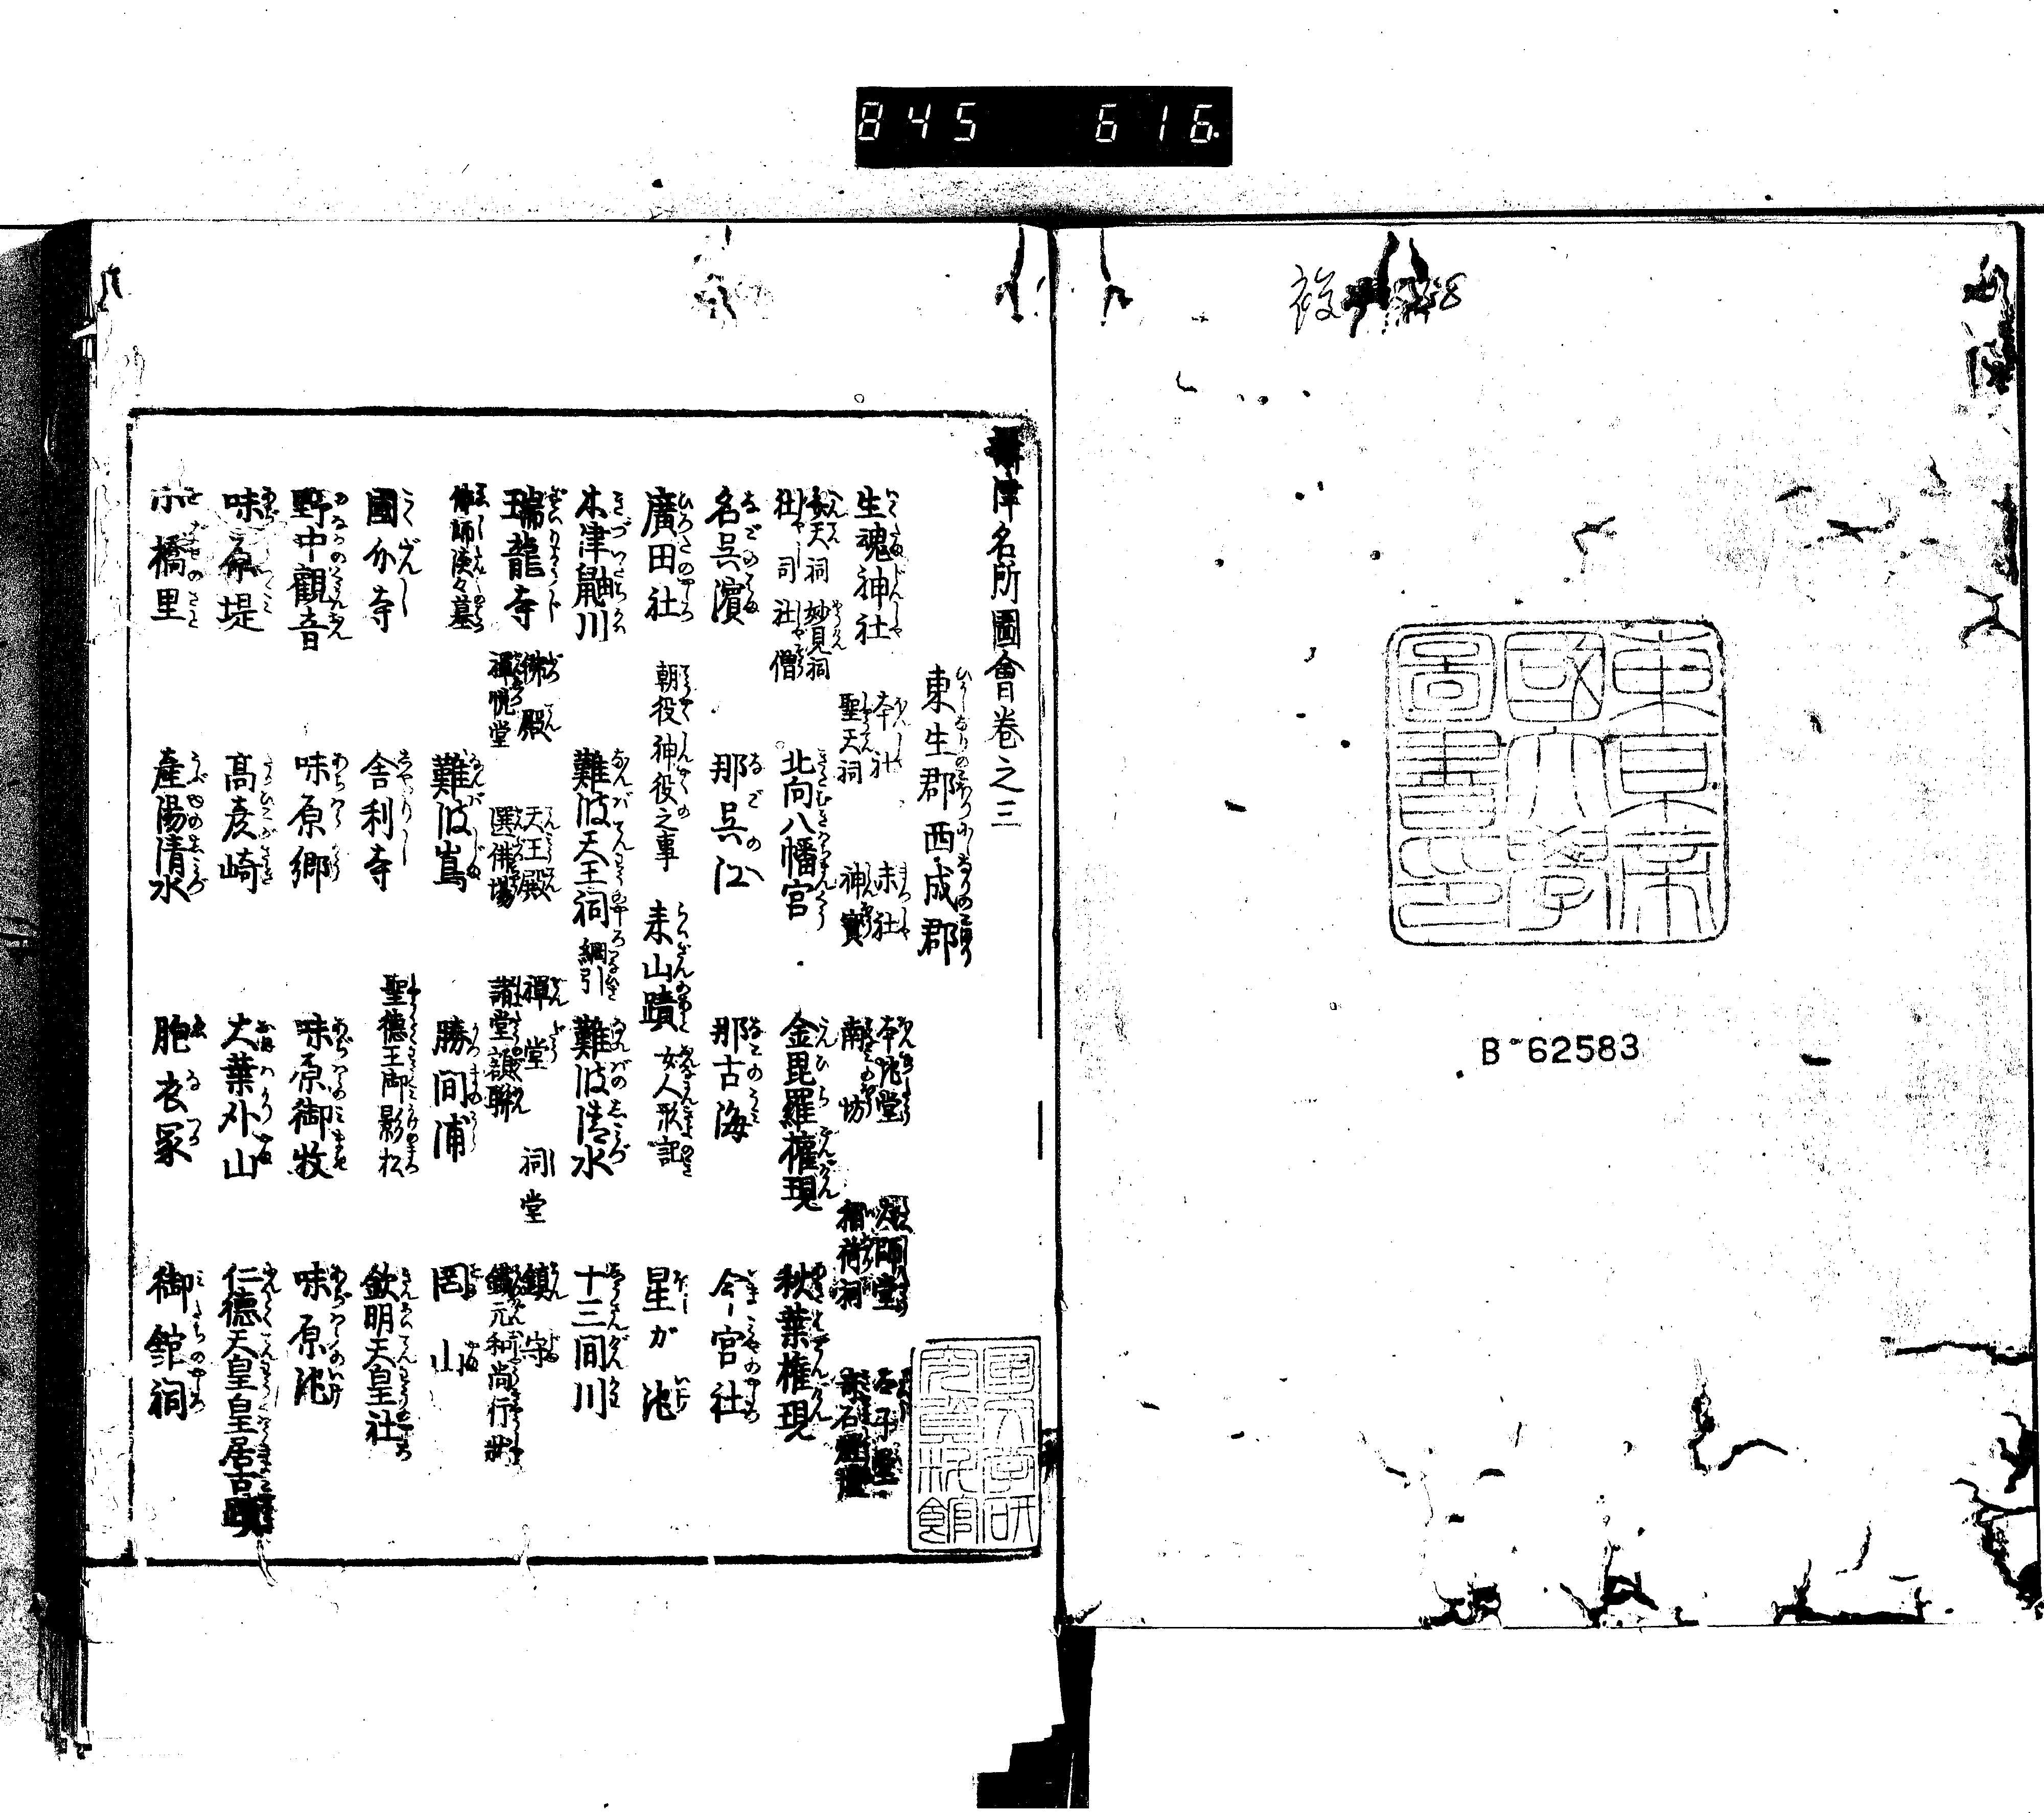 845 616
東京帝
國大學
圖書印
B 62583
攝津名所圖會卷之三
東生郡西成郡
生魂神社 本社 末社 本地堂 大師堂
聖天祠 神寳 南坊
弁天祠 妙見祠
社司 社僧 北向八幡宮 金毘羅權現 秋葉權現
名呉濱 那呉江 那古海 今宮社
廣田社 朝役神役之事 来山蹟 女人形記 星が池
木津鼬川 難波天王祠 綱引 難波清水 十三間川
瑞龍寺 佛殿 天王殿 禪堂 祠堂 鎮守
禪悦堂 選佛場 諸堂額聯 鐵元和尚行状
難波嶌 勝間浦 岡山
國分寺 舎利寺 聖徳王御影松 欽明天皇社
野中觀音 味原郷 味原御牧 味原池
味原堤 髙彦崎 大葉外山 仁德天皇皇居古蹟
小橋里 產湯清水 胞衣冢 御館祠